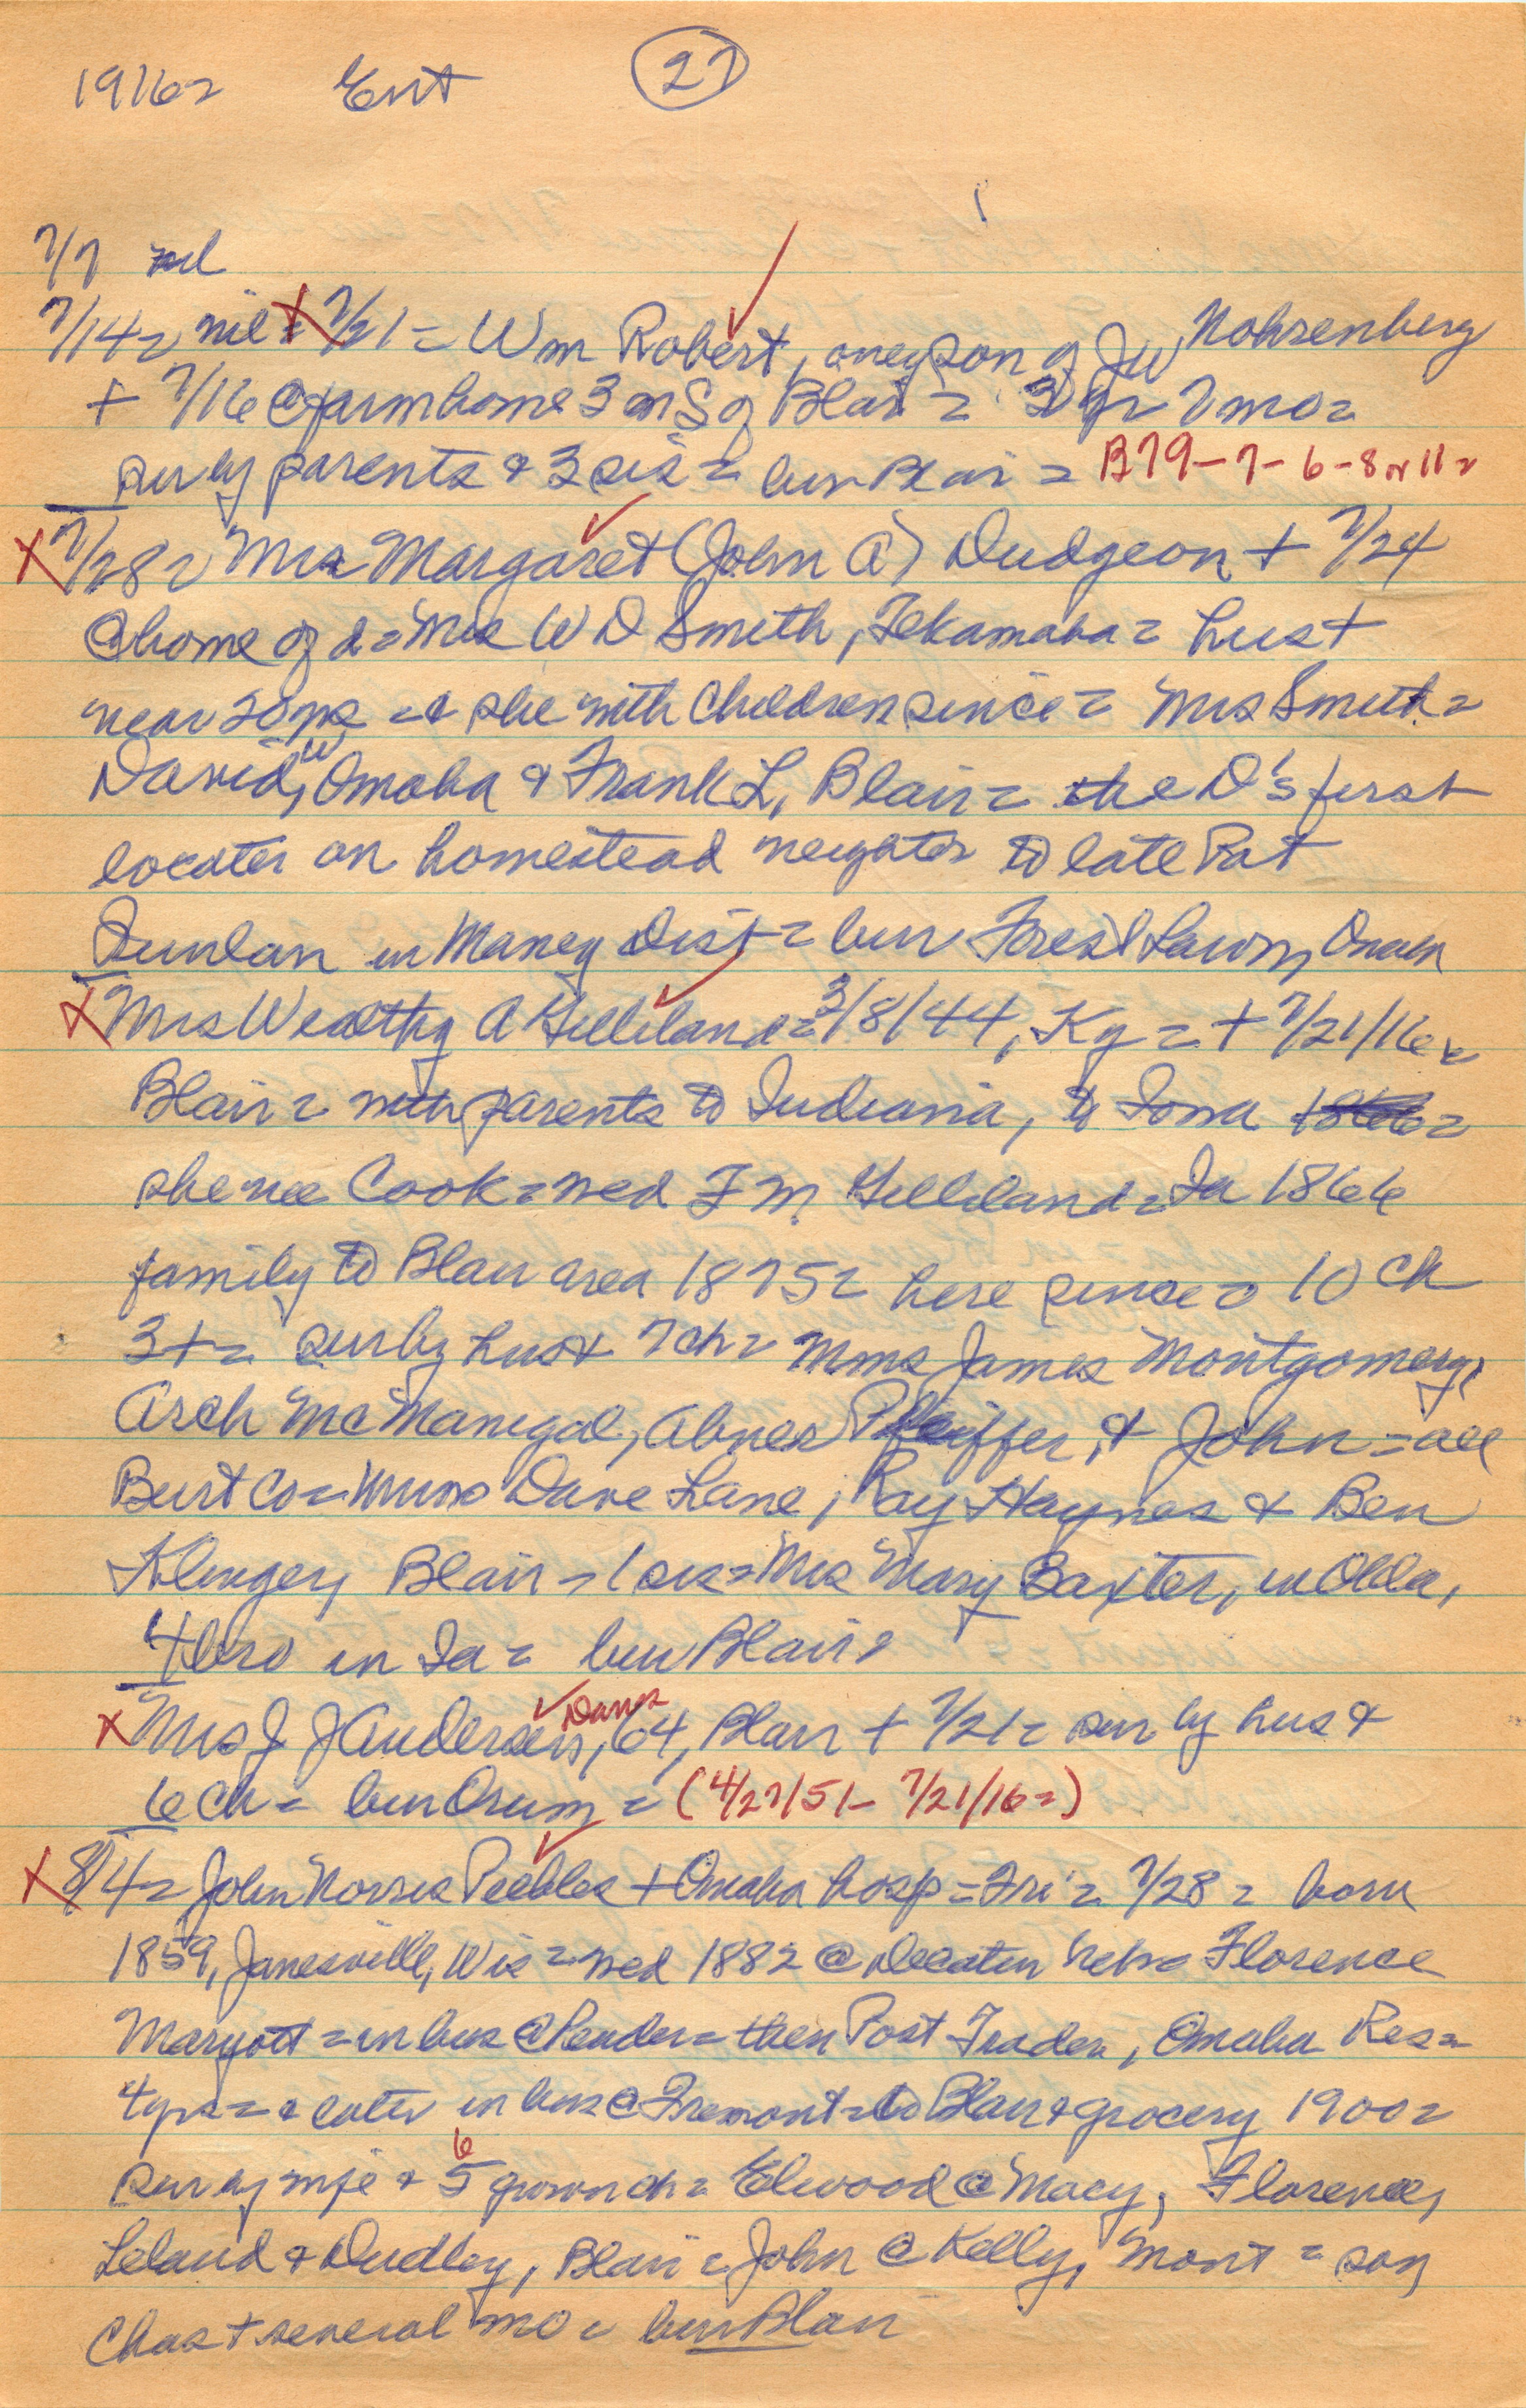 1916= Ent 27
7/7 nil
7/14= nil = X 7/21 = Wm Robert, only son of JW Nohrenberg
+ 7/16 @ farm home 3 m S of Blair = 3 yr 7 mo =
sur by parents & 3 sis = bur Blair = B79-7-6-8 or 11=
X 7/28= Mrs Margaret (John A) Dudgeon + 7/24
@ home of d = Mrs W D Smith, Tekamah = hus +
near 20 yrs = & she with children since = Mrs Smith =
David W, Omaha & Frank L, Blair = the D's first
locater on homestead neighbor to late Pat
Quinlan in Maney Dist = bur Forest Lawn, Omaha
X Mrs Wealthy A Gilliland = 3/8/44, Ky = + 7/21/16 =
Blair = with parents to Indiana, to Iowa 1866 =
she nee Cook = wed F M Gilliland = Ia 1866
family to Blair area 1875 = here since = 10 ch
3 + = sur by hus & 7 ch = Mms James Montgomery,
Arch McManigal, Abner Pfeiffer, & John = all
Burt Co = Mms Dave Lane, Ray Haynes & Ben
Klinger, Blair = 1 sis = Mrs Mary Baxter, in Okla,
4 bro in Ia = bur Blair =
X Mrs J J Andersen, Dana 64, Blair + 7/21 = sur by hus &
6 ch = bur Orum = (4/27/51- 7/21/16=)
X 8/4= John Norris Peebles + Omaha hosp = Fri = 7/28 = born
1859, Janesville, Wis = wed 1882 @ Decatur Neb = Florence
Maryott = in bus @ Pender = then Post Trader, Omaha Res =
4 yrs = & later in bus @ Fremont = to Blair & grocery 1900 =
sur by wife & 5 6 grown ch = Elwood @ Macy, Florence,
Leland & Dudley, Blair = John @ Kelly, Mont = son
Chas + several mo = bur Blair